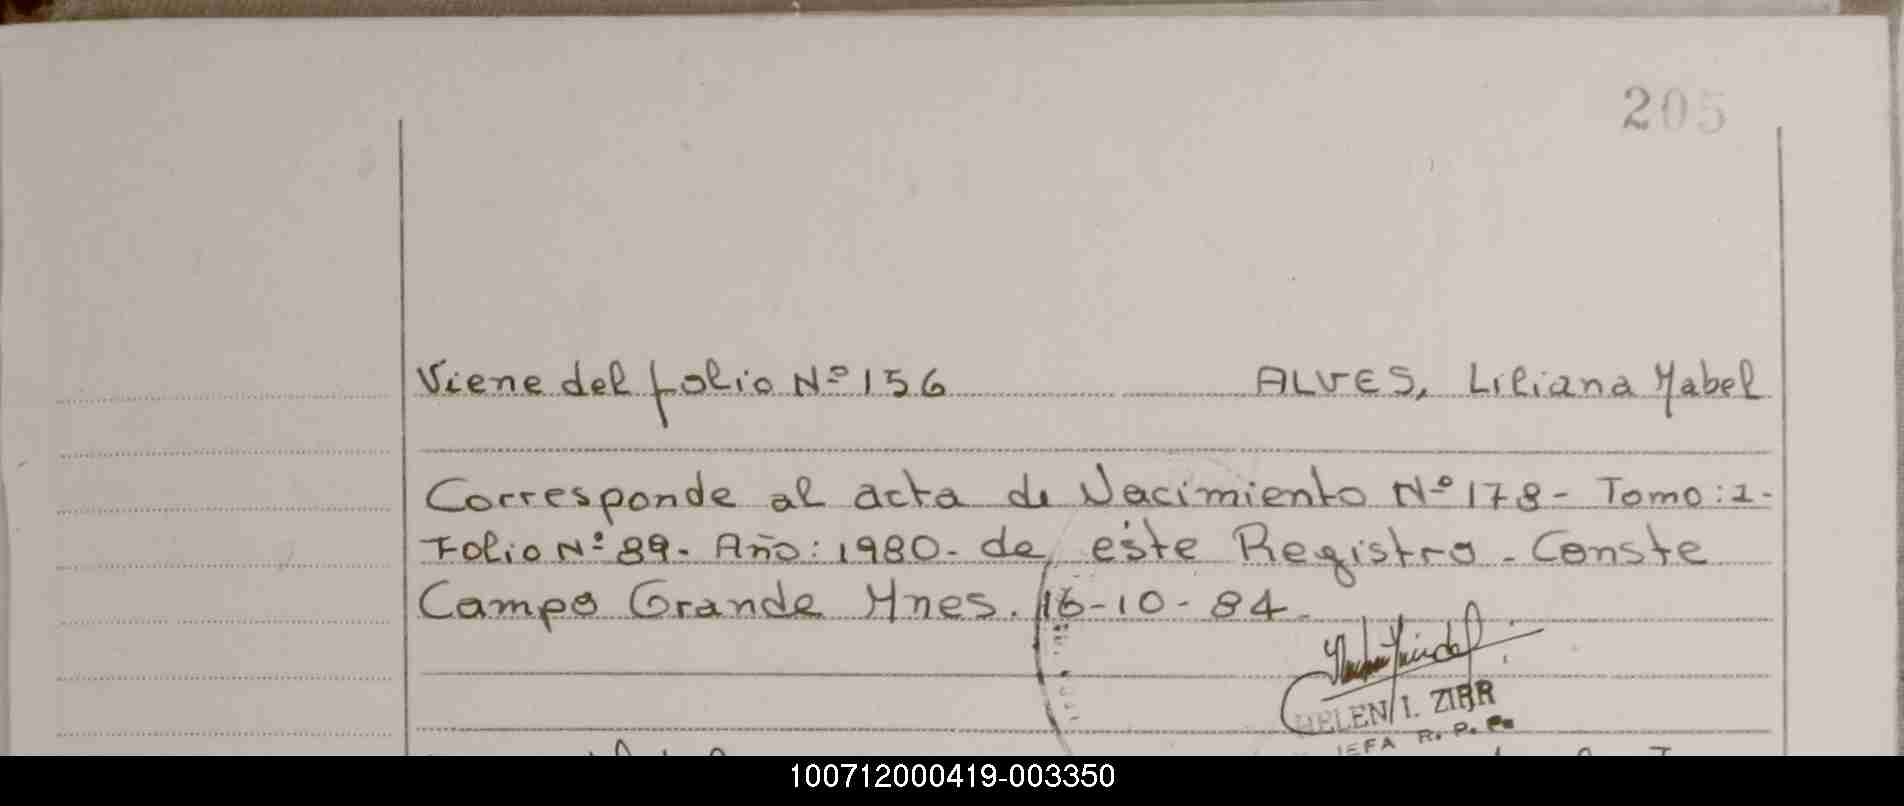 205
Viene del folio Nº 156 ALVES, Liliana Mabel
Corresponde al acta de Nacimiento Nº 178- Tomo: 1-
Folio Nº 89- Año: 1980- de este Registro - Conste
Campo Grande Mnes. 16-10-84-
HELEN I. ZIRR
JEFA R. P. P.
100712000419-003350